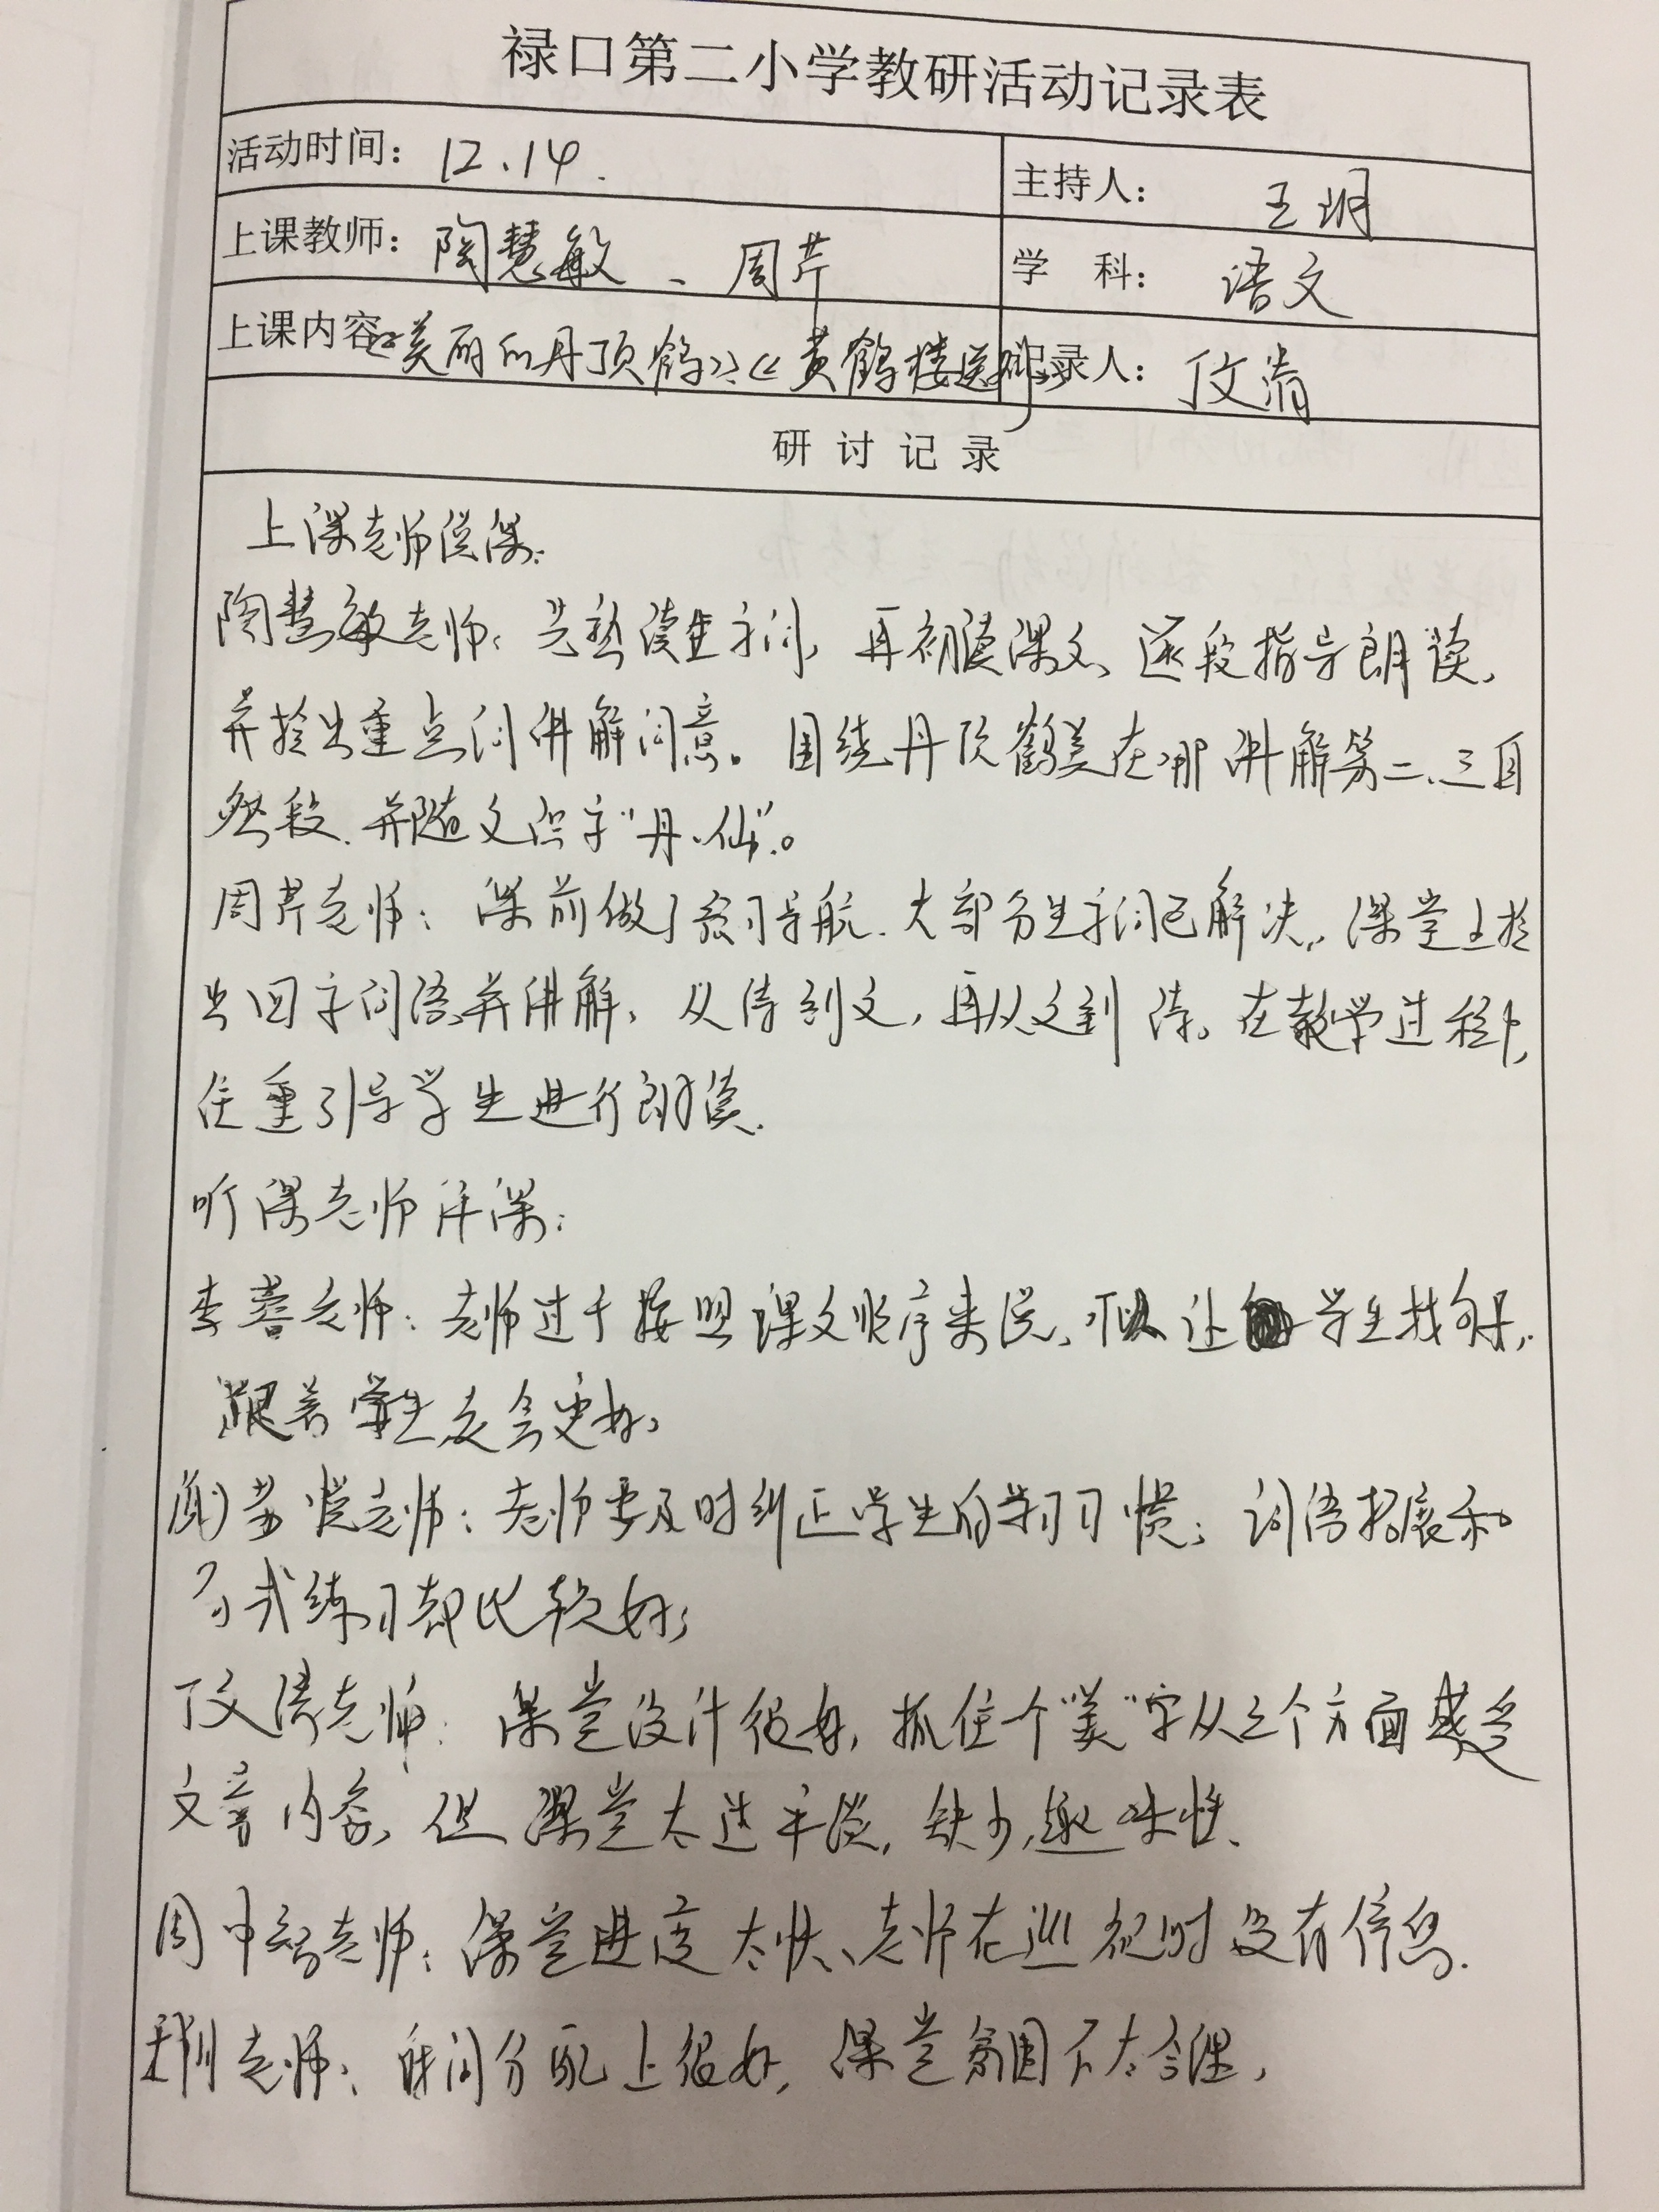 禄口第二小学教研活动记录表
活动时间： 12.14.
主持人： 王玥
上课教师： 陶慧敏、周芹
学 科： 语文
上课内容 《美丽的丹顶鹤》《黄鹤楼送别》
记录人： 丁文清
研讨记录
上课老师说课：
陶慧敏老师：先熟读生字词，再初读课文，逐段指导朗读，
并捡出重点词讲解词意。围绕丹顶鹤美在哪讲解第二、三自
然段.并随文识字“丹、仙”。
周芹老师：课前做了预习导航.大部分生字词已解决，课堂上捡
出四字词语并讲解，从诗到文，再从文到诗。在教学过程中，
注重引导学生进行朗读.
听课老师评课：
李蓉老师：老师过于按照课文顺序来说，可以让学生找句子，
跟着学生走会更好，
老师：老师要及时纠正学生的学习习惯；词语拓展和
句式练习都比较好；
丁文清老师：课堂设计很好，抓住个“美”字从三个方面感受
文章内容，但课堂太过平淡，缺少趣味性、
周中 老师：课堂进度太快、老师在巡视时没有停息.
老师：时间分配上很好，课堂氛围不太合理，